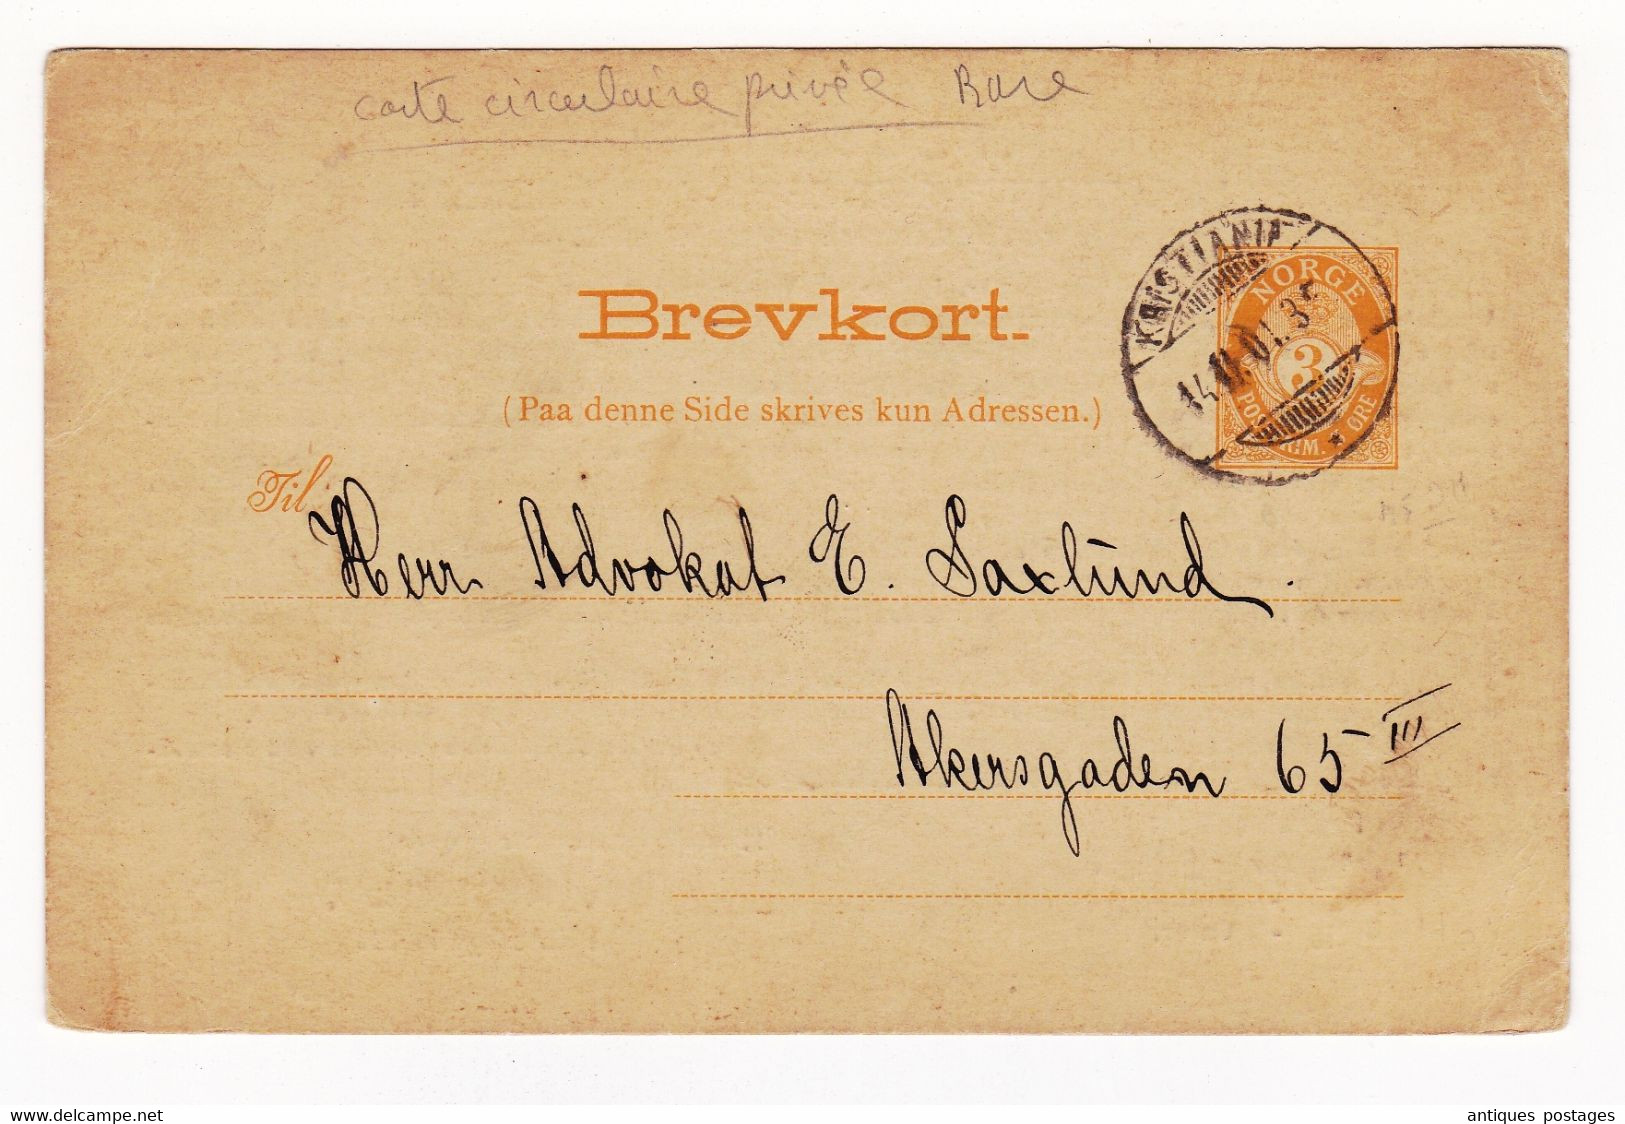 carte circulaire privée Rare
Brevkort.
(Paa denne Side skrives kun Adressen.)
KRISTIANIA
NORGE
3
ØRE
Til
Herr Advokat E. Saxlund.
Akersgaden 65 III
www.delcampe.net
antiques postages